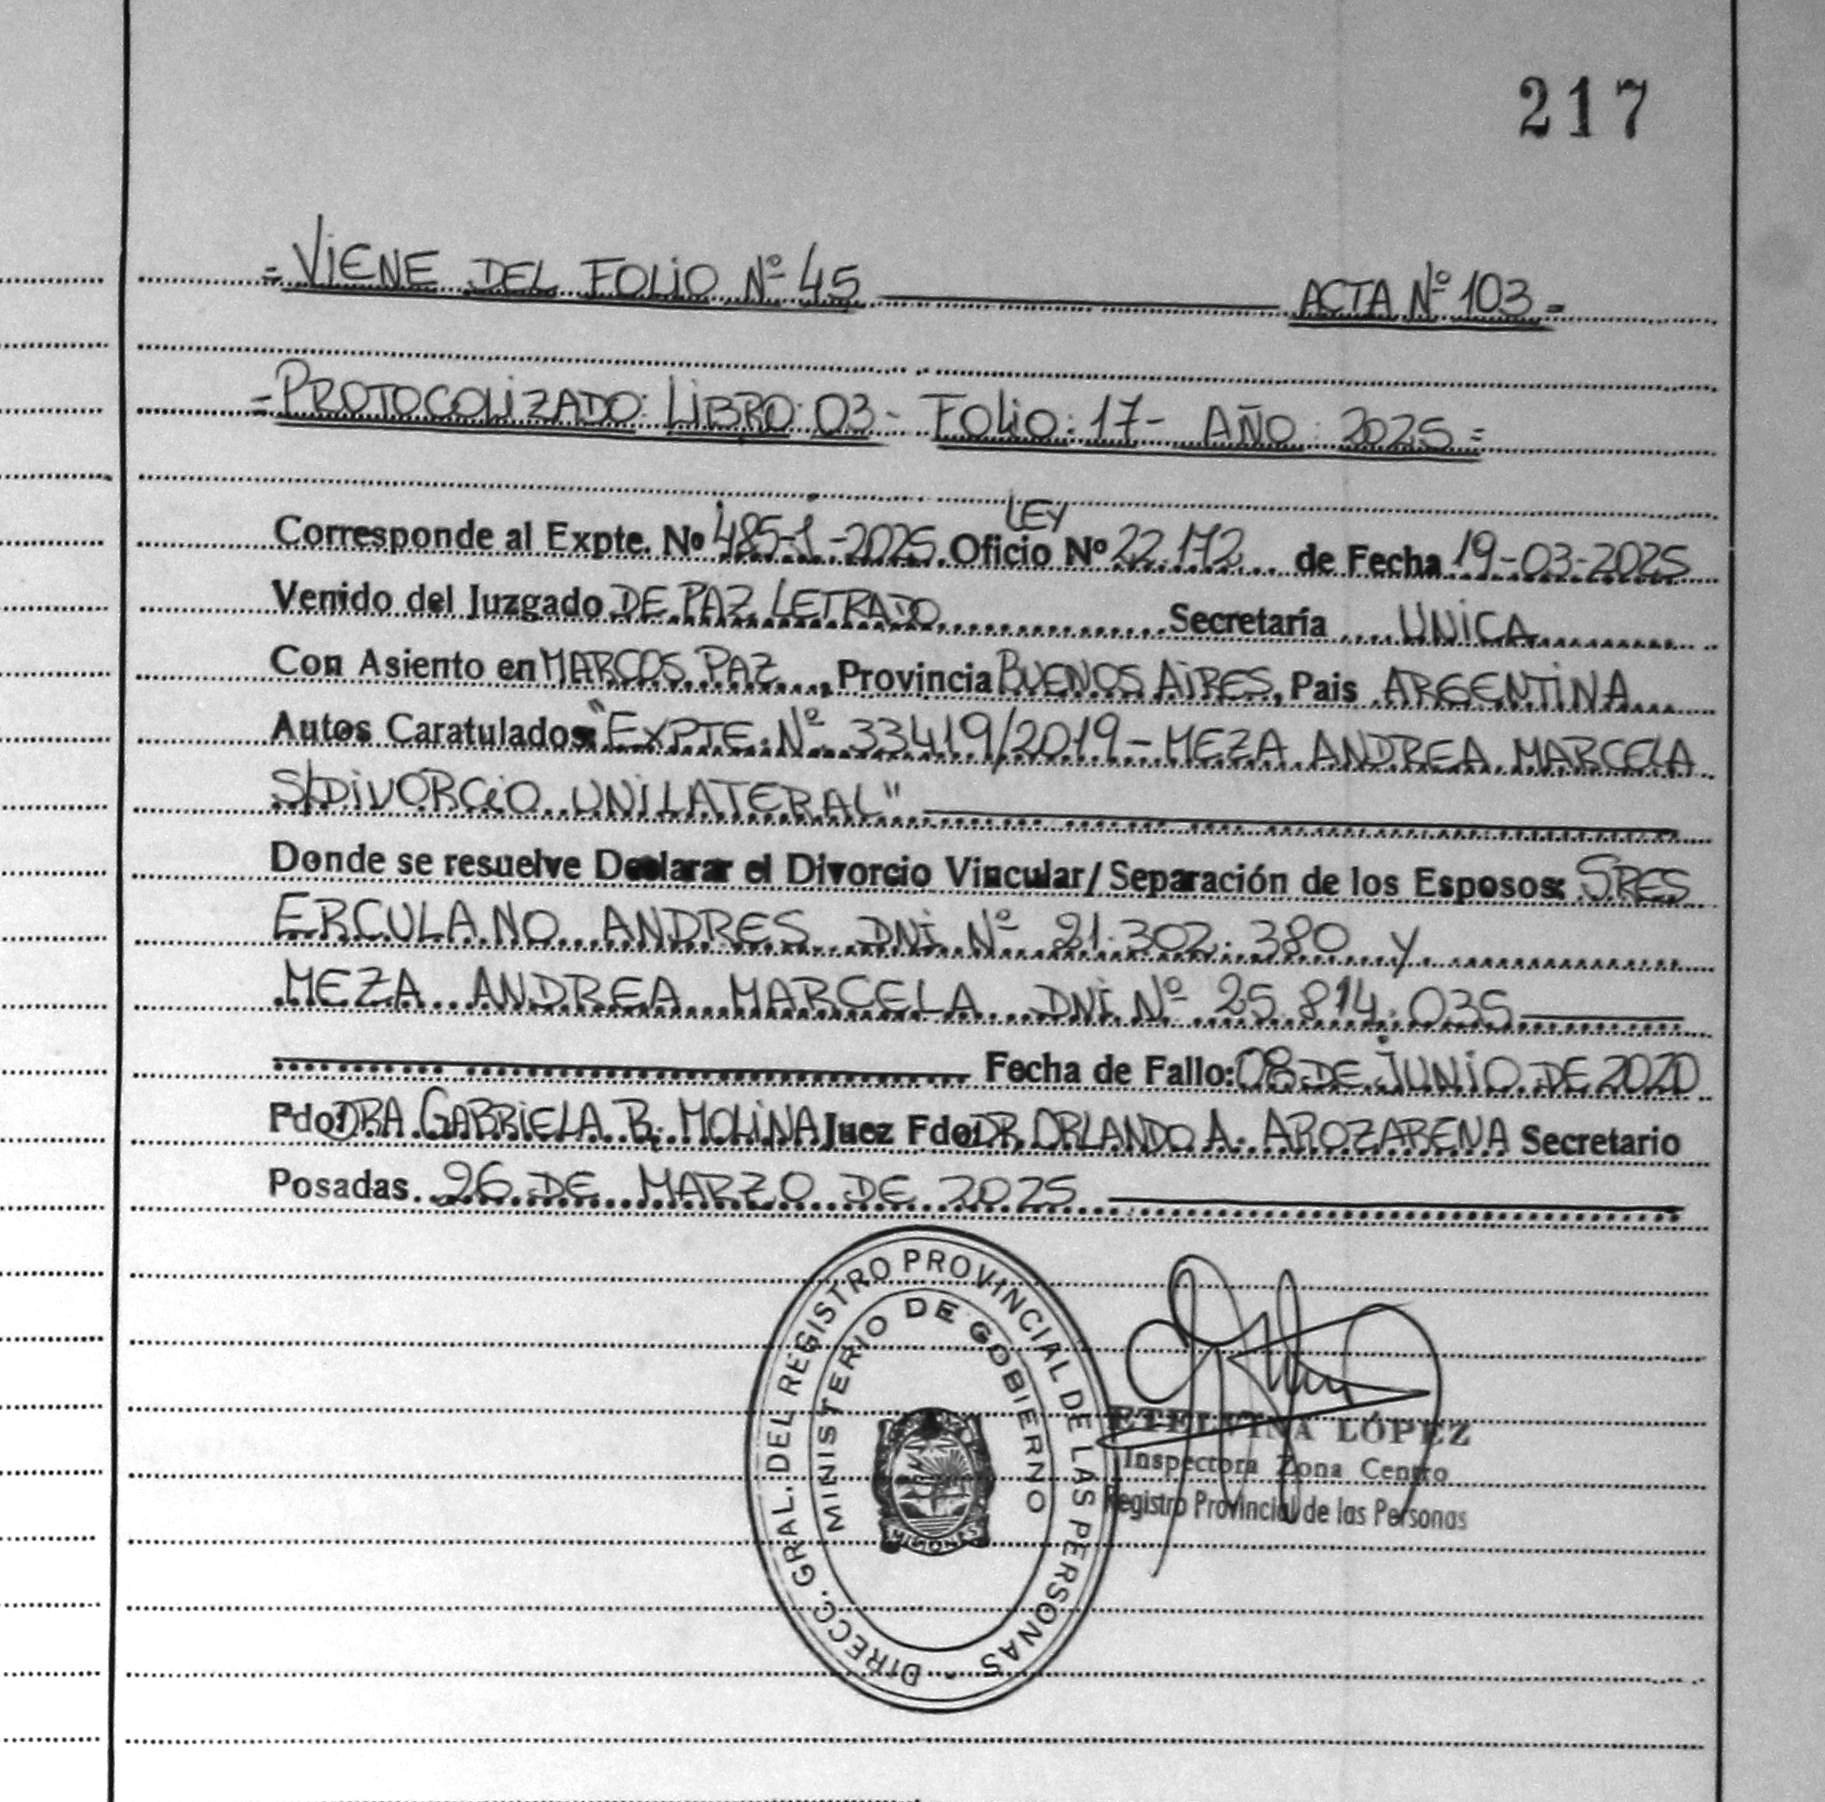 217
= VIENE DEL FOLIO Nº 45 ACTA Nº 103 =
= PROTOCOLIZADO: LIBRO: 03 - FOLIO: 17 - AÑO: 2025 =
LEY
Corresponde al Expte. Nº 485-1-2025 Oficio Nº 22.172 de Fecha 19-03-2025
Venido del Juzgado DE PAZ LETRADO Secretaría UNICA
Con Asiento en MARCOS PAZ, Provincia BUENOS AIRES, Pais ARGENTINA
Autos Caratulados: "EXPTE. Nº 33419/2019 - MEZA ANDREA MARCELA
S/DIVORCIO UNILATERAL"
Donde se resuelve Declarar el Divorcio Vincular/ Separación de los Esposos: SRES
ERCULANO ANDRES DNI Nº 21.302.380 y
MEZA ANDREA MARCELA DNI Nº 25.814.035
Fecha de Fallo: 08 DE JUNIO DE 2020
Fdo: DRA GABRIELA R. MOLINA Juez Fdo: DR. ORLANDO A. AROZARENA Secretario
Posadas 26 DE MARZO DE 2025
DIRECC. GRAL. DEL REGISTRO PROVINCIAL DE LAS PERSONAS
MINISTERIO DE GOBIERNO
MISIONES
ETELVINA LÓPEZ
Inspectora Zona Centro
Registro Provincial de las Personas